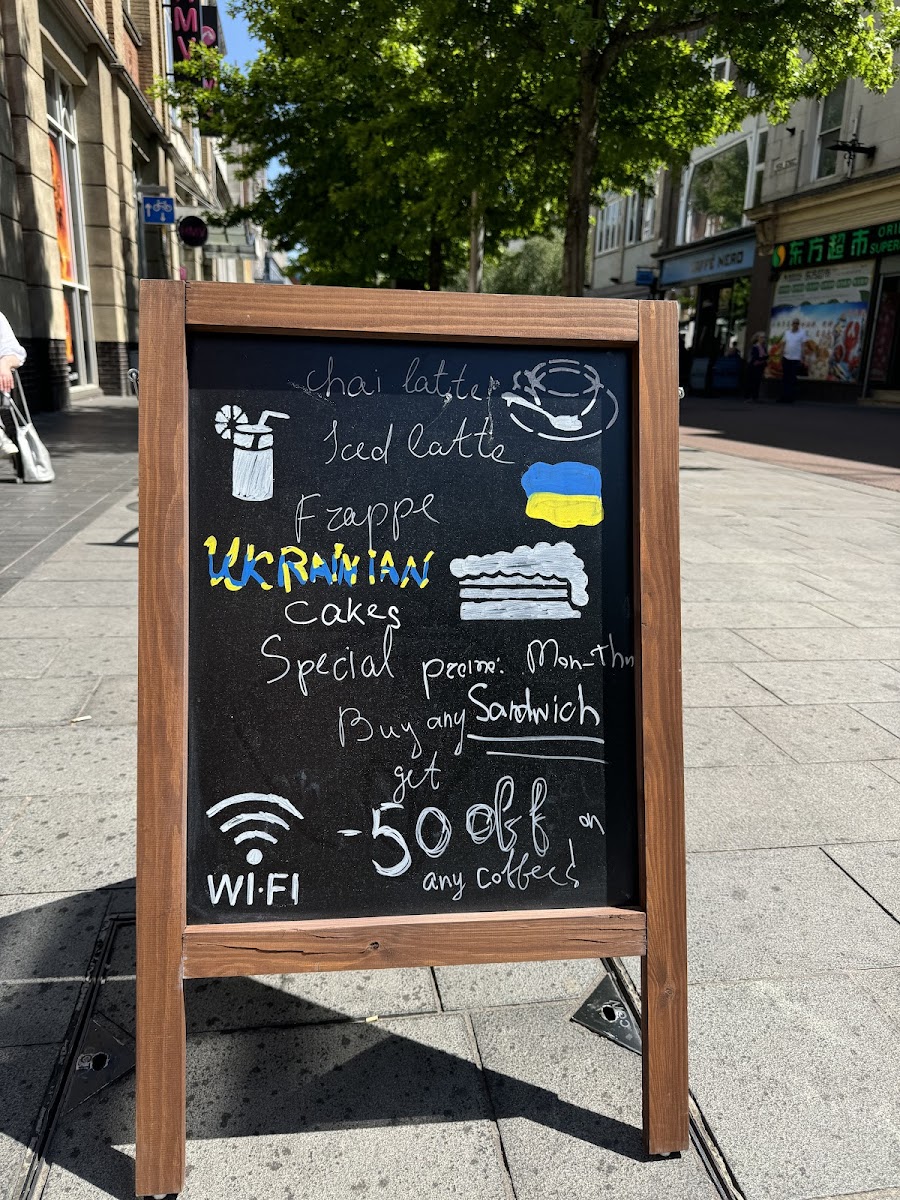 HMV
HMV
CAFFÈ NERO
东方超市
chai latte
Iced latte
Frappe
UKRAINIAN
cakes
Special
Mon-Thu
Buy any Sandwich
get
-50 off on
any coffee!
WI-FI